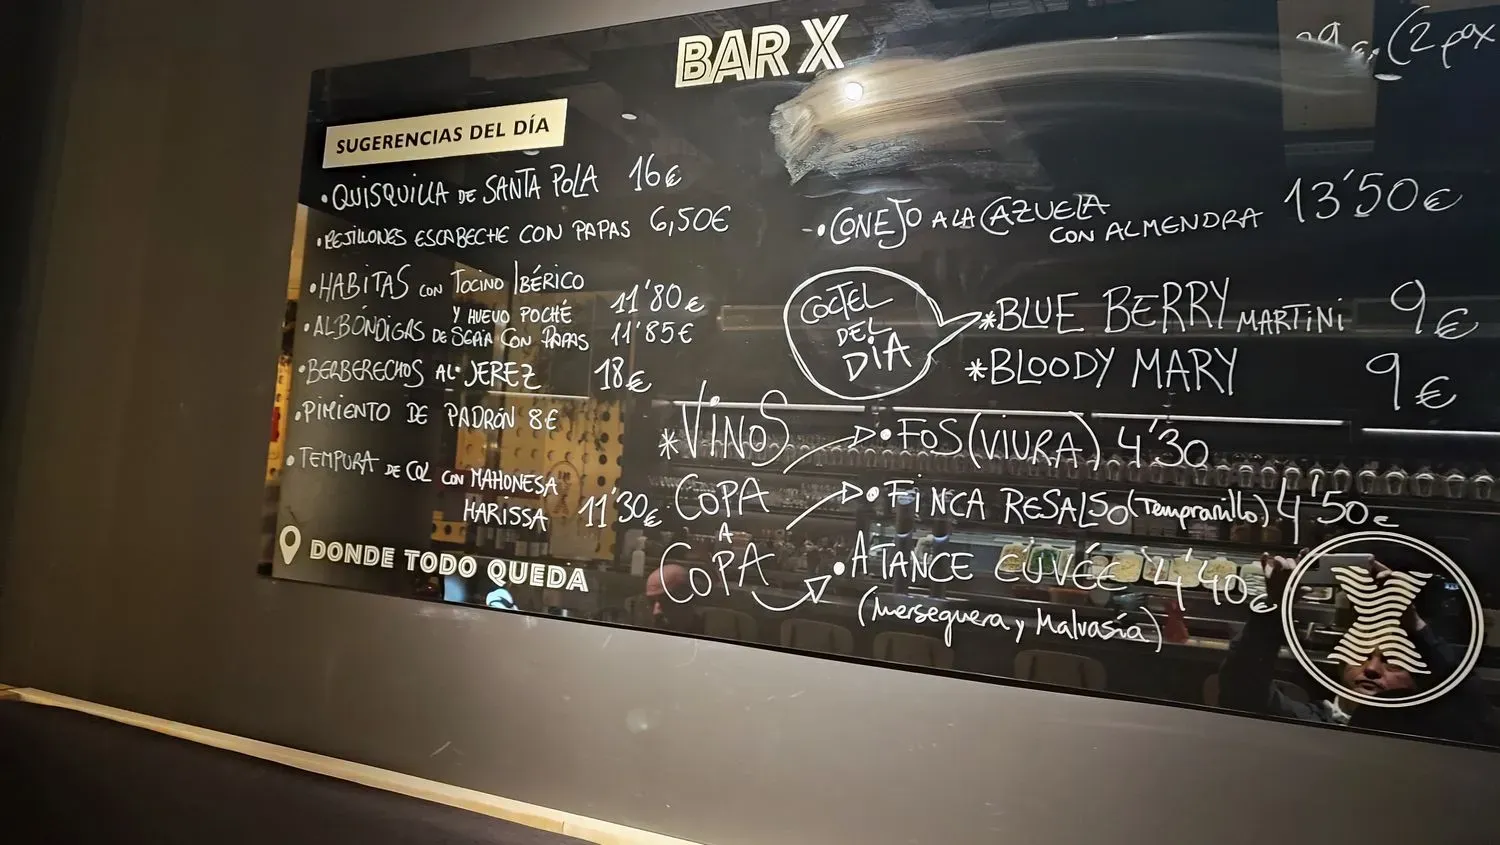 BAR X
SUGERENCIAS DEL DÍA
• QUISQUILLA DE SANTA POLA 16€
• MEJILLONES ESCABECHE CON PAPAS 6,50€
• HABITAS CON TOCINO IBÉRICO
Y HUEVO POCHÉ 11'80€
• ALBÓNDIGAS DE SEPIA CON PAPAS 11'85€
• BERBERECHOS AL JEREZ 18€
• PIMIENTO DE PADRÓN 8€
• TEMPURA DE COL CON MAHONESA
HARISSA 11'30€
DONDE TODO QUEDA
€. (2 pax
-• CONEJO A LA CAZUELA
CON ALMENDRA 13'50€
COCTEL
DEL
DÍA
*BLUE BERRY MARTINI 9€
*BLOODY MARY 9€
*VINOS
COPA
A
COPA
• FOS (VIURA) 4'30
• FINCA RESALSO (Tempranillo) 4'50€
• ATANCE CUVÉE 4'40€
(Merseguera y Malvasía)
X